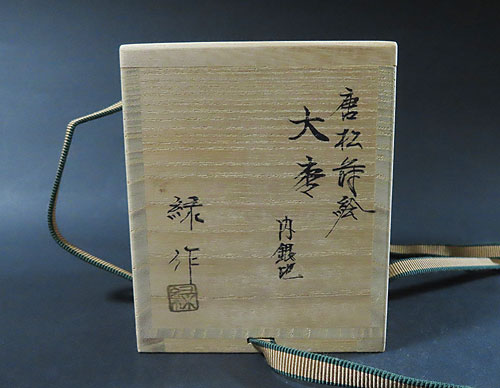 唐松蒔絵
大棗
内銀地
緑作
緑